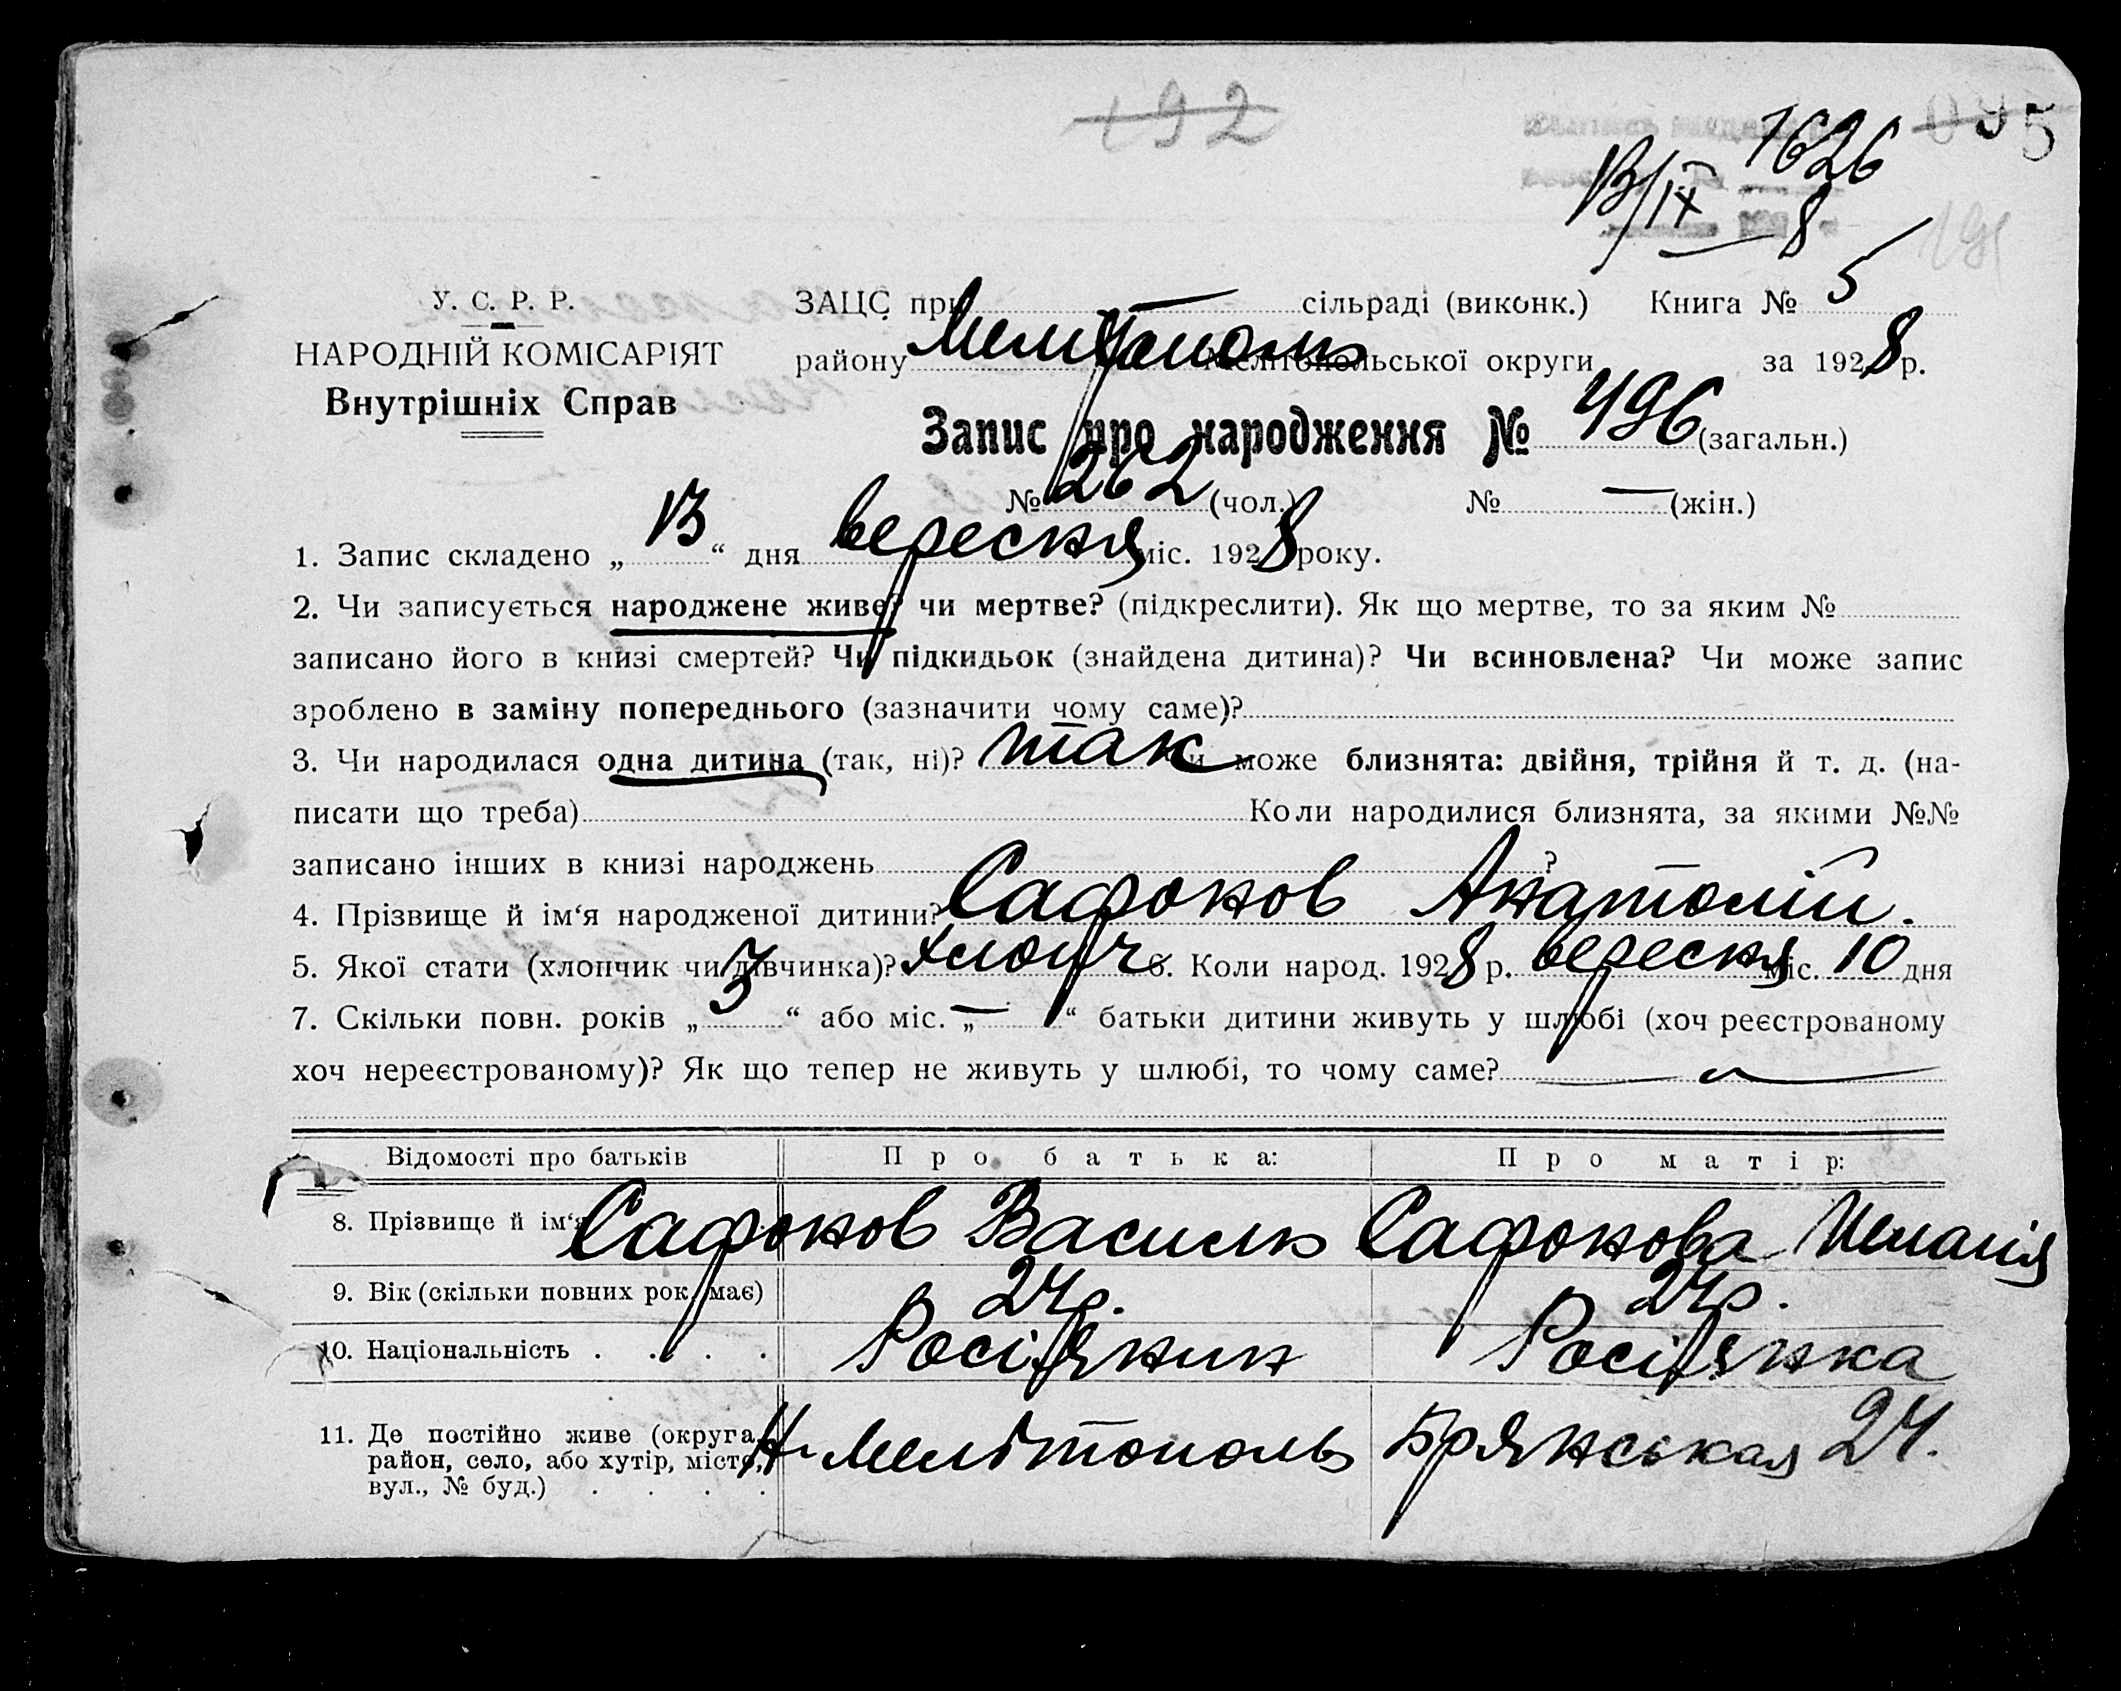 192
1626
5
13/IX 8
195
У. С. Р. Р.
НАРОДНІЙ КОМІСАРІЯТ
Внутрішніх Справ
ЗАЦС при — сільраді (виконк.) Книга № 5
району Мелітополь Мелітопольської округи за 1928 р.
Запис про народження № 496 (загальн.)
№ 262 (чол.) № — (жін.)
1. Запис складено „13“ дня вересня міс. 1928 року.
2. Чи записується народжене живе? чи мертве? (підкреслити). Як що мертве, то за яким №
записано його в книзі смертей? Чи підкидьок (знайдена дитина)? Чи всиновлена? Чи може запис
зроблено в заміну попереднього (зазначити чому саме)?
3. Чи народилася одна дитина (так, ні)? так Чи може близнята: двійня, трійня й т. д. (на-
писати що треба) Коли народилися близнята, за якими №№
записано інших в книзі народжень ?
4. Прізвище й ім‘я народженої дитини? Сафонов Анатолій.
5. Якої стати (хлопчик чи дівчинка)? хлопч 6. Коли народ. 1928 р. вересня міс. 10 дня
7. Скільки повн. років „3“ або міс. „—“ батьки дитини живуть у шлюбі (хоч реєстрованому
хоч нереєстрованому)? Як що тепер не живуть у шлюбі, то чому саме? —
Відомості про батьків Про батька: Про матір:
8. Прізвище й ім‘я Сафонов Василь Сафонова Пелагія
9. Вік (скільки повних рок. має) 24р. 24р.
10. Національність . . . . Росіянин Росіянка
11. Де постійно живе (округа,
район, село, або хутір, місто,
вул., № буд.) . . . .
Н-Мелітополь Брянськая 24.